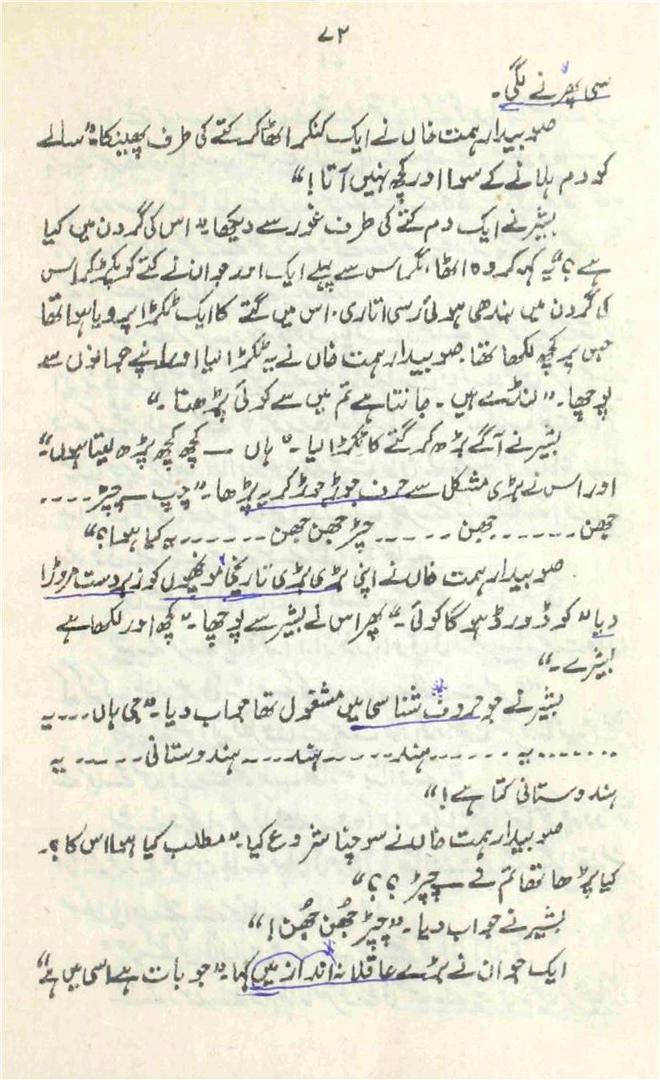 ۷۲
سی پھرنے لگی۔
صوبیدار ہمت خاں نے ایک کنکر اٹھا کر کتے کی طرف پھینکا "سالے
کو دم ہلانے کے سوا اور کچھ نہیں آتا!"
بشیر نے ایک دم کتے کی طرف غور سے دیکھا "اس کی گردن میں کیا
ہے؟" یہ کہہ کر وہ اٹھا، مگر اس سے پہلے ایک اور جوان نے کتے کو پکڑ کر اس
کی گردن میں بندھی ہوئی رسی اتاری۔ اس میں گتے کا ایک ٹکڑا پرویا ہوا تھا
جس پر کچھ لکھا تھا۔ صوبیدار ہمت خاں نے یہ ٹکڑا لیا اور اپنے جوانوں سے
پوچھا۔ "لنڈے ہیں۔ جانتا ہے تم میں سے کوئی پڑھنا۔"
بشیر نے آگے بڑھ کر گتے کا ٹکڑا لیا۔ "ہاں — کچھ کچھ پڑھ لیتا ہوں۔"
اور اس نے بڑی مشکل سے حرف جوڑ جوڑ کر یہ پڑھا۔ "چپ — چپڑ ....
جھن ....... جھن ..... چپڑ جھن جھن ....... یہ کیا ہوا؟"
صوبیدار ہمت خاں نے اپنی بڑی بڑی تاریخی مونچھوں کو زبردست مروڑا
دیا "کوڈ ورڈ ہو گا کوئی۔" پھر اس نے بشیر سے پوچھا۔ "کچھ اور لکھا ہے
بشیرے۔"
بشیر نے جو حروف شناسی میں مشغول تھا جواب دیا۔ "جی ہاں ... یہ
....... یہ ...... ہند ..... ہند .... ہندوستانی ..... یہ
ہندوستانی کتا ہے!"
صوبیدار ہمت خاں نے سوچنا شروع کیا۔ "مطلب کیا ہوا اس کا؟۔
کیا پڑھا تھا تم نے — چپڑ؟؟"
بشیر نے جواب دیا۔ "چپڑ جُھن جُھن!"
ایک جوان نے بڑے عاقلانہ انداز میں کہا۔ "جو بات ہے اسی میں ہے"